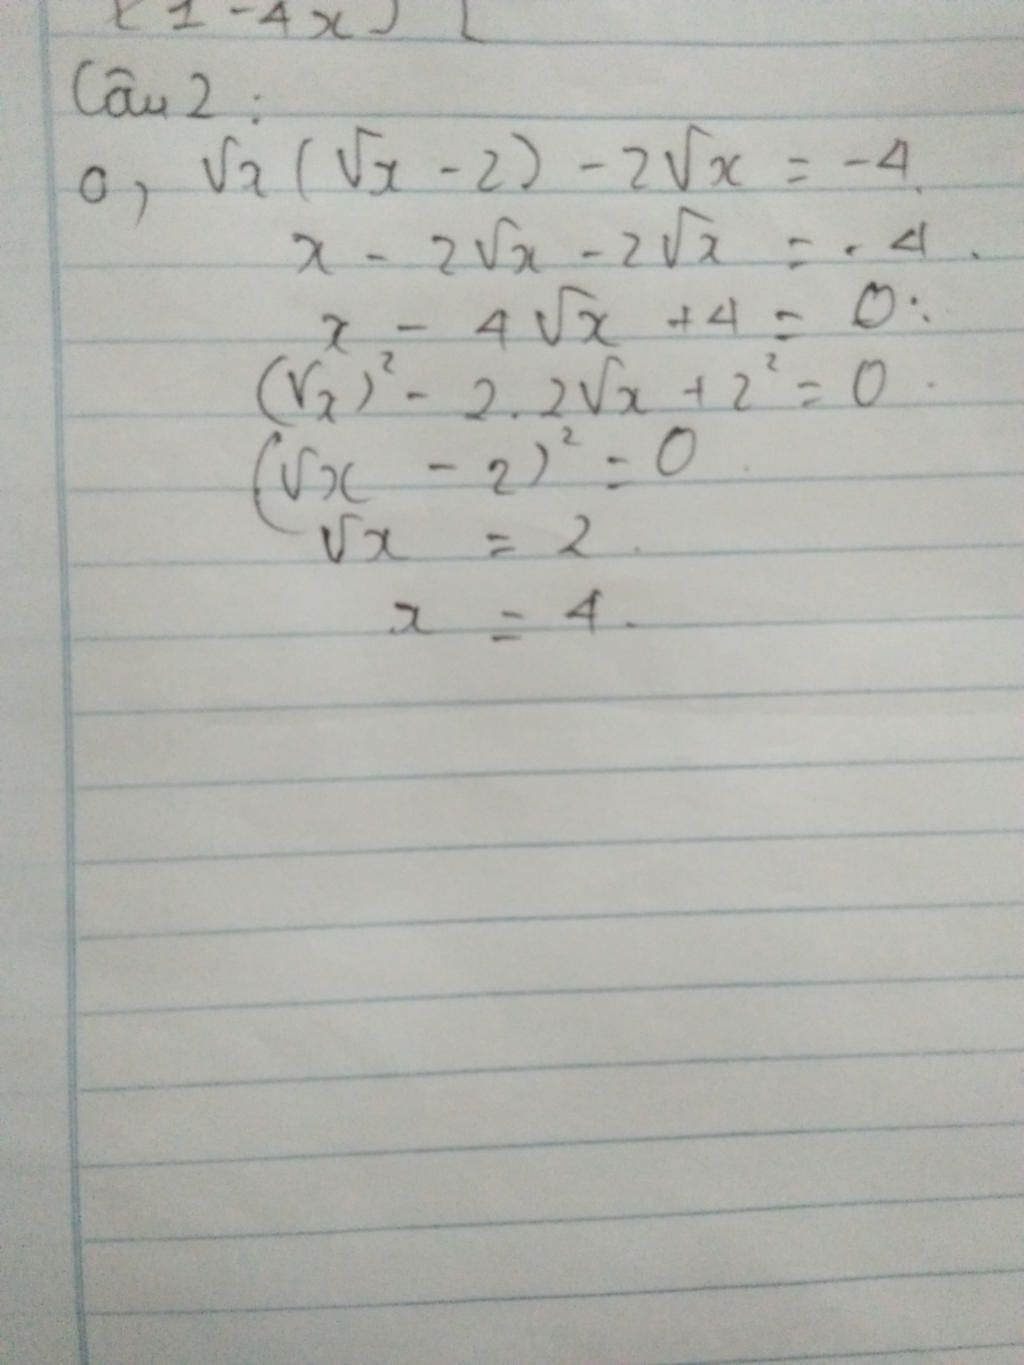 (1-4x)
Câu 2:
a, √x (√x - 2) - 2√x = -4.
x - 2√x - 2√x = -4.
x - 4√x + 4 = 0.
(√x)² - 2.2√x + 2² = 0.
(√x - 2)² = 0.
√x = 2.
x = 4.